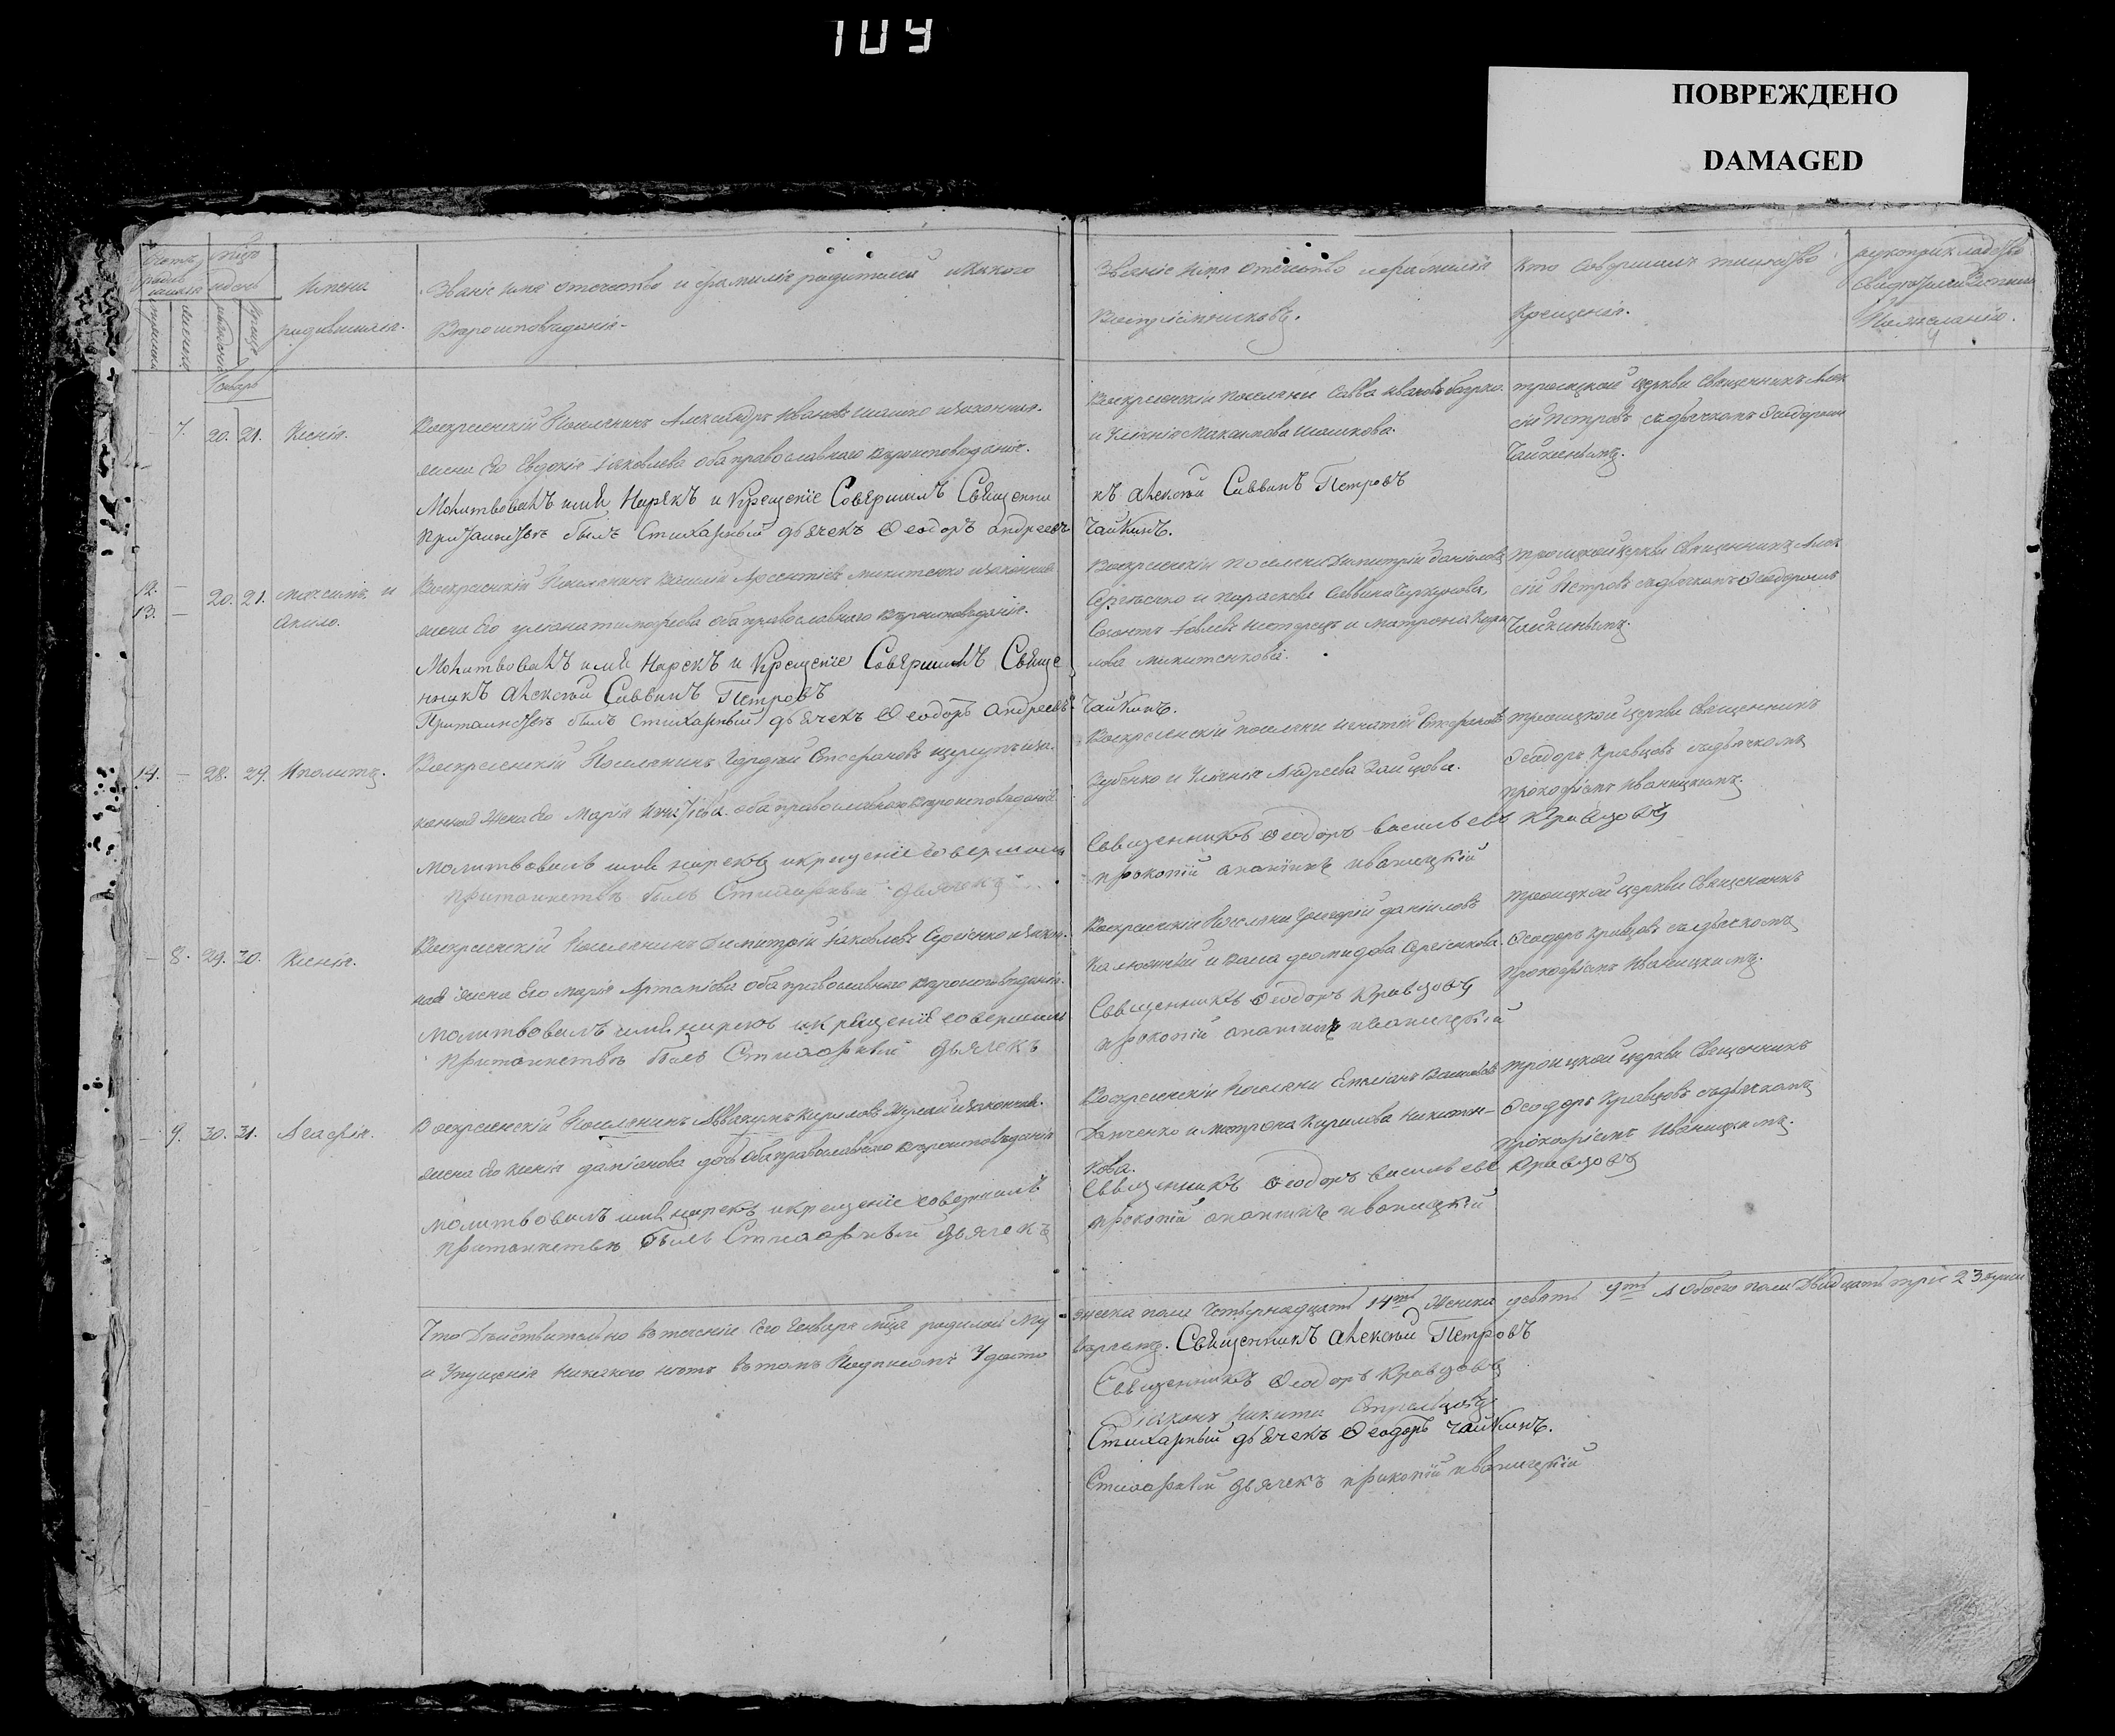 109
ПОВРЕЖДЕНО
DAMAGED
Имена
родившихся.
Званіе имя отечество и фамилія родителей и какого
Вероисповеданія.
Званіе имя отечество и фамилія
Воспріемниковъ.
Кто совершалъ таинство
Крещенія.
рукоприкладство
Свидетелей
По желанію.
Генварь
7. 20. 21. Ксенія.
Воскресенскій Поселянинъ Александръ Ивановъ Шашко и законная
жена Его Евдокія Іаковлева оба православнаго вероисповеданія.
Молитвовалъ имя Нарекъ и Крещеніе Совершилъ Священни
При Таинстве былъ Стихарный дьячекъ Ѳеодоръ Андреевъ
Воскресенскіи Поселяне Савва Ивановъ
и Ксенія Максимова Шашкова.
къ Алексей Саввинъ Петровъ
Чайкинъ.
троицкой церкви Священникъ Алек
сей Петровъ съ дьячкомъ Ѳеодоромъ
Чайкинымъ.
12. —
13. —
20. 21. Максимъ и
Акило.
Воскресенскій Поселянинъ Василій Арсентіевъ Микитенко и законная
жена Его Улияна Тимофеева оба православнаго вероисповеданія.
Молитвовалъ имя Нарекъ и Крещеніе Совершилъ Свяще
нникъ Алексей Саввинъ Петровъ
При таинстве былъ Стихарный дьячекъ Ѳеодоръ Андреевъ
Воскресенскіи поселяне Димитрій Даніиловъ
Сергеенко и Параскева Саввина
и Матрона Кири
лова Микитенкова.
Чайкинъ.
троицкой церкви священникъ Алек
сей Петровъ съ дьячкомъ Ѳеодоромъ
Чайкинымъ.
14. — 28. 29. Иполитъ.
Воскресенскій Поселянинъ Гордей Стефановъ и за
конная Жена Его Марія оба православнаго вероисповеданія
молитвовалъ имя нарекъ и крещеніе совершилъ
притаинстве былъ Стихарный дьячекъ
Воскресенскіи поселяне Игнатій Стефановъ
Зубенко и Ксенія Андреева Зайцова.
Священникъ Ѳеодоръ Васильевъ Кравцовъ
прокопій ананіинъ иваницкій
троицкой церкви Священникъ
Ѳеодоръ Кравцовъ съ дьячкомъ
прокофіемъ Иваницкимъ.
— 8. 29. 30. Ксенія.
Воскресенскій Поселянинъ Димитрій Іаковлевъ Сергіенко и закон
ная Жена Его Марія Артаміова оба православнаго вероисповеданія.
молитвовалъ имя нарекъ и крещеніе совершилъ
притаинстве былъ Стихарный дьячекъ
Воскресенскіи Поселяне Григорій Даніиловъ
Калюжный и Васса Сергіенкова.
Священникъ Ѳеодоръ Кравцовъ
прокопій ананіинъ иваницкій
троицкой церкви Священникъ
Ѳеодоръ Кравцовъ съ дьячкомъ
Прокофіемъ Иваницкимъ.
— 9. 30. 31. Агафія.
Воскресенскій Поселянинъ Аввакумъ Кириловъ и законная
жена Его Ксенія Даміанова оба православнаго вероисповеданія
молитвовалъ имя нарекъ и крещеніе совершилъ
притаинстве былъ Стихарный дьячекъ
Воскресенскіи Поселяне Емеліанъ
и Матрона Кирилова Никитен-
кова.
Священникъ Ѳеодоръ Васильевъ Кравцовъ
прокопій ананіинъ иваницкій
троицкой церкви Священникъ
Ѳеодоръ Кравцовъ съ дьячкомъ
Прокофіемъ Иваницкимъ.
Что Действительно въ теченіи сего Генваря мца родилось Му
жеска пола Четырнадцать 14ть Женска девять 9ть А обоего пола Двадцать три 23 души
и Упущенія никакого нетъ въ томъ Подписомъ Удосто
веряемъ. Священникъ Алексей Петровъ
Священникъ Ѳеодоръ Кравцовъ
Діаконъ Никита Стрельцовъ
Стихарный дьячекъ Ѳеодоръ Чайкинъ.
Стихарный дьячекъ прокопій иваницкій